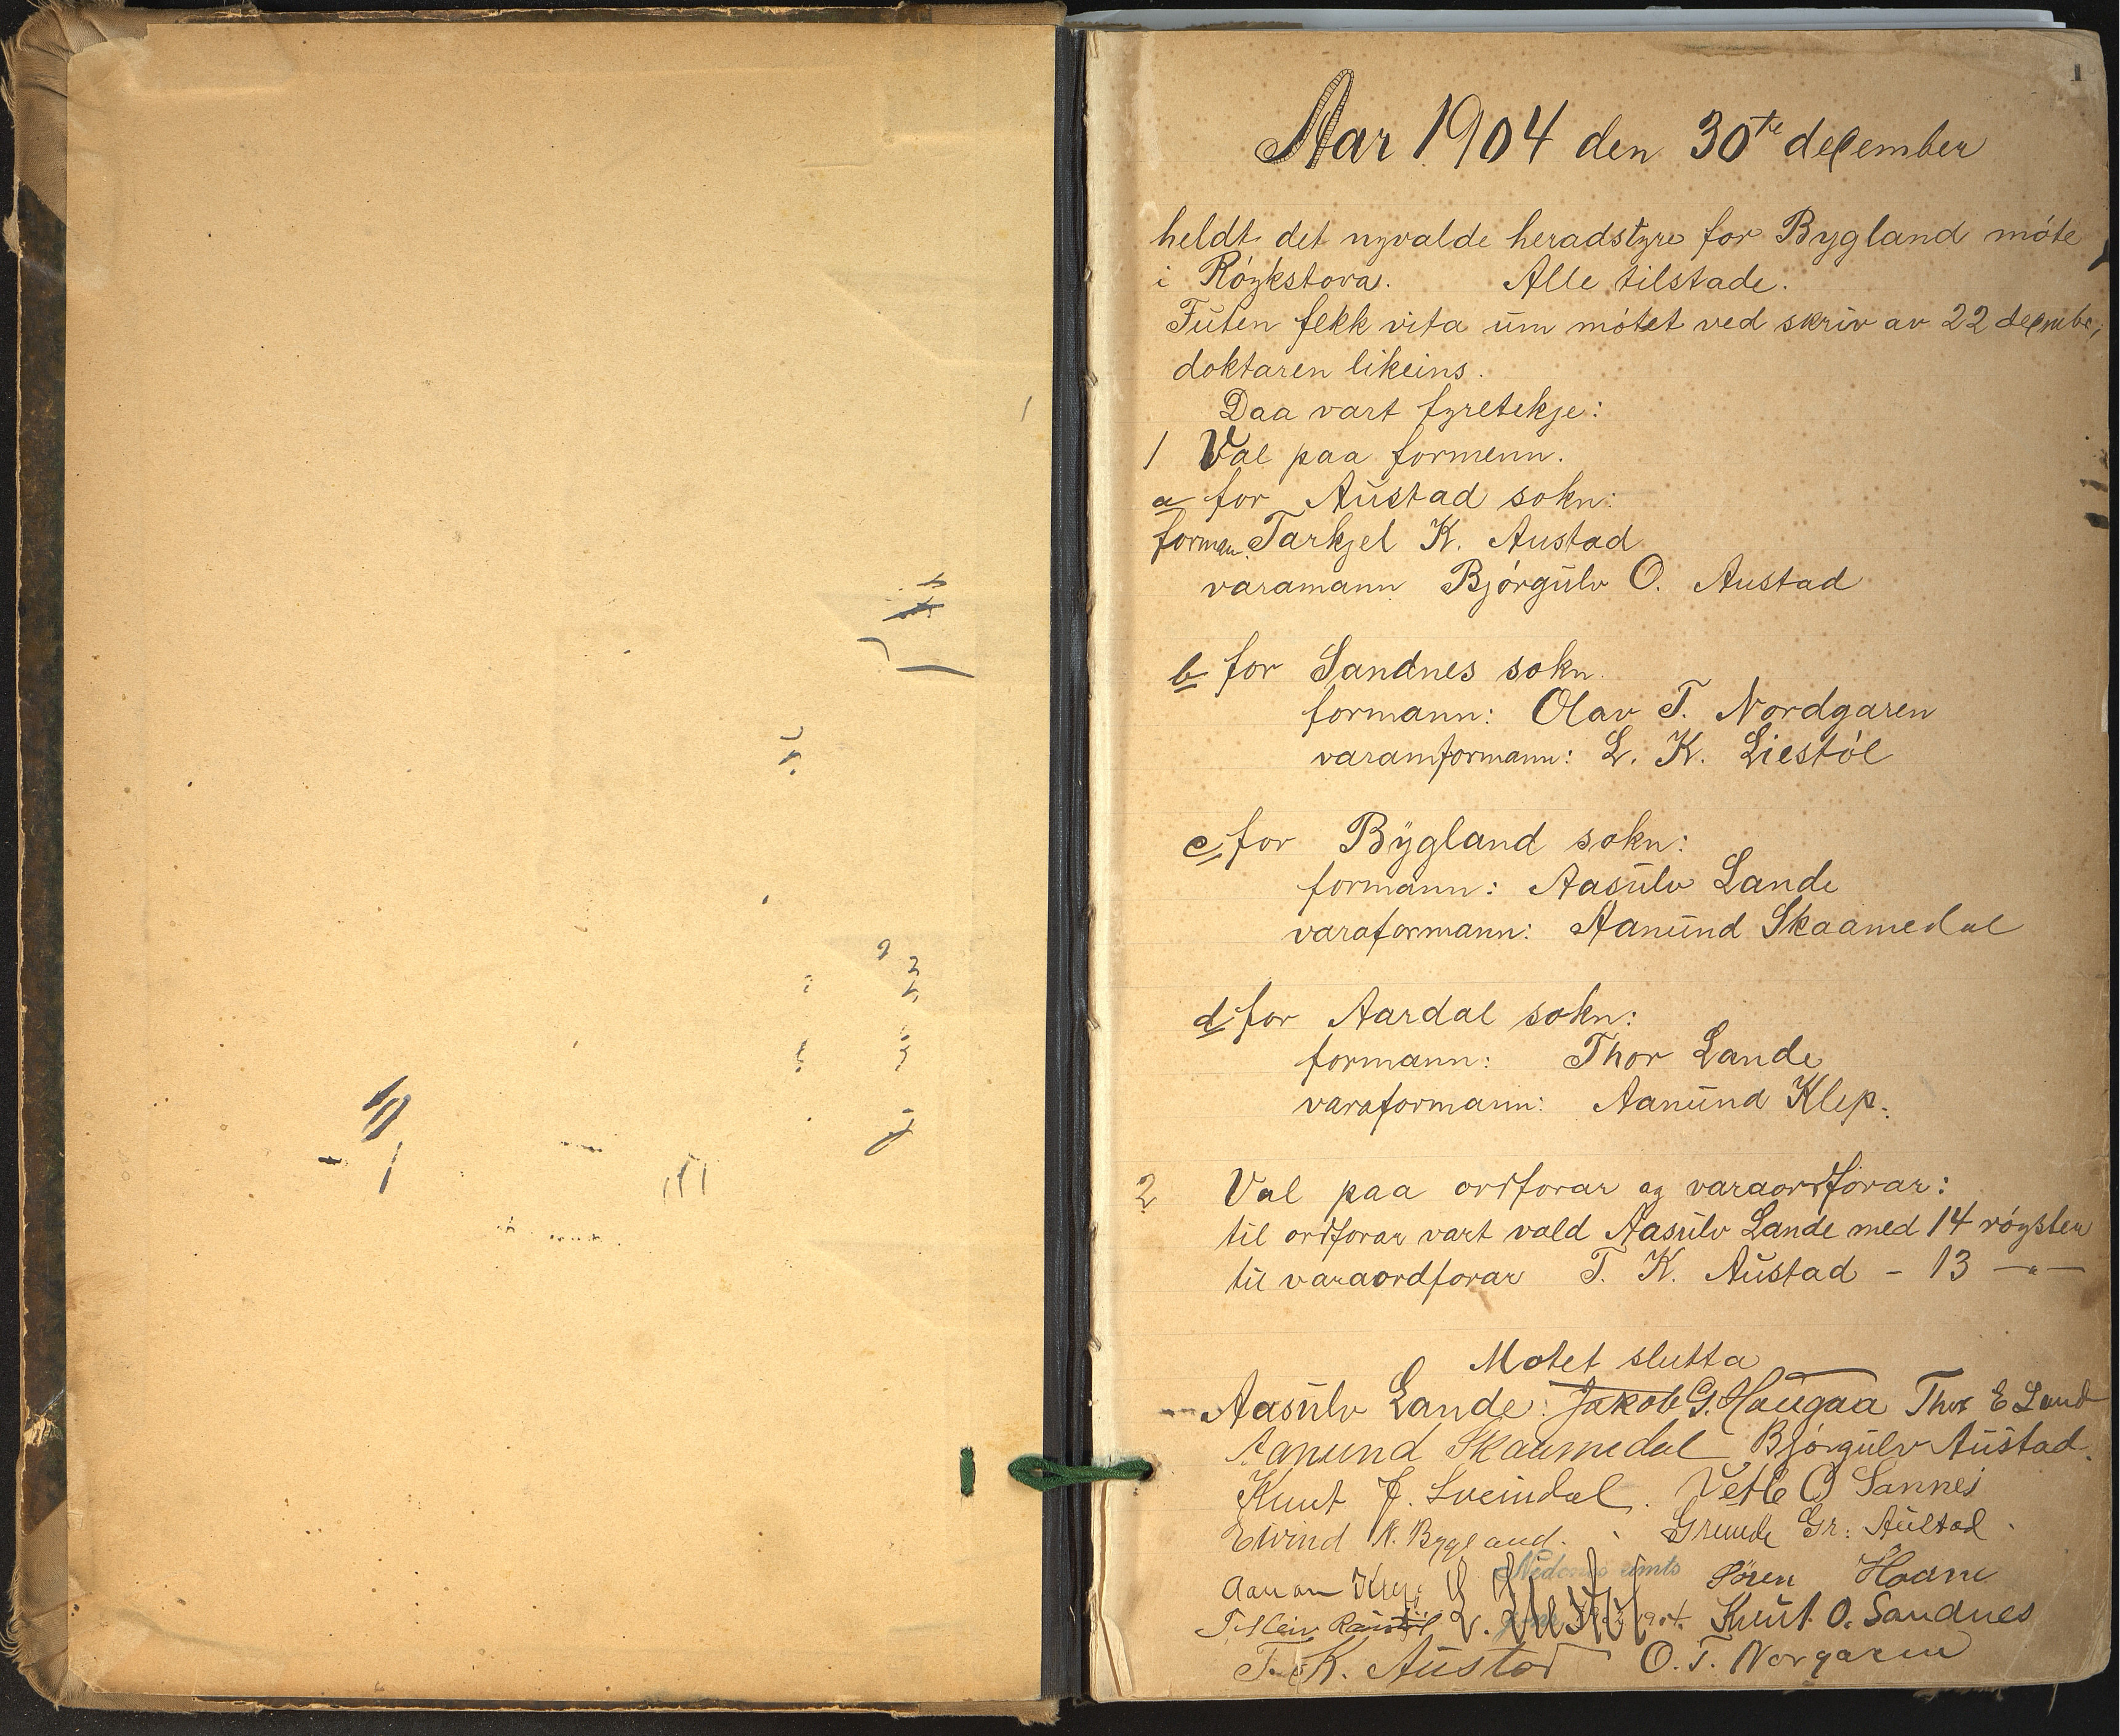 1
Aar 1904 den 30te december
heldt det nyvalde heradstyre for Bygland móte
i Róykstova. Alle tilstade.
Futen fekk vita um mótet ved skriv av 22 decembr,
doktaren likeins.
Daa vart fyretekje:
1 Val paa formenn.
a for Austad sokn:
forman. Tarkjel K. Austad
varamann Bjórgulv O. Austad
b for Sandnes sokn.
formann: Olav T. Nordgaren
varamformann: L. K. Liestól
c for Bygland sokn:
formann: Aasulv Lande
varaformann: Aanund Skaamedal
d for Aardal sokn:
formann: Thor Lande
varaformann: Aanund Klep.
2 Val paa ordforar og varaordforar:
til ordforar vart vald Aasulv Lande med 14 róyster
til varaordforar T. K. Austad - 13 —"—
Motet slutta
Aasulv Lande. Jakob G. Haugaa Thor E Land
Aanund Skaamedal Bjórgulv Austad.
Knut J. Sveindal. Vetle O Sannes
Eivind K. Bygland. Grunde Gr: Austad.
Nedenes amts Sören Haane
L. Liestól 1904. Knut O. Sandnes
T. K. Austad O. T. Norgaren